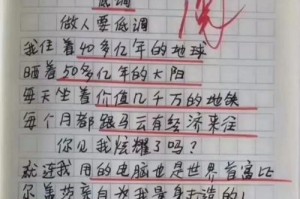 低调
做人要低调
我住着40多亿年的地球
晒着50多亿年的太阳
每天坐着价值几千万的地铁
每个月都跟马云有经济来往
你见我炫耀了吗？
就连我用的电脑也是世界首富比
尔盖茨亲自为我量身打造的！